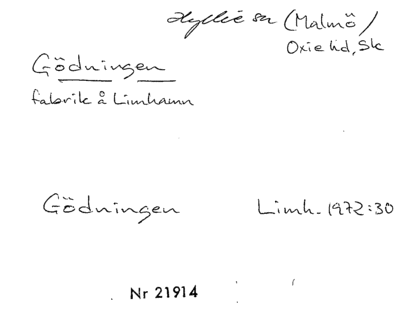 Hyllie sn (Malmö)
Oxie hd, Sk
Gödningen
fabrik å Limhamn
Gödningen Limh. 1972:30
Nr 21914